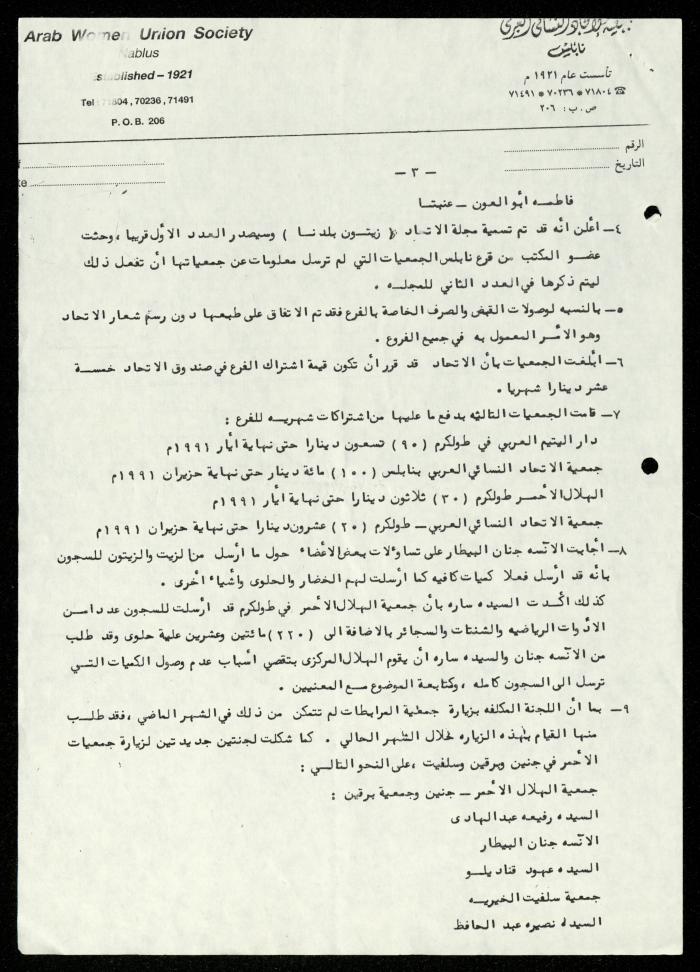 Arab Women Union Society
Nablus
Established – 1921
Tel : 71804 , 70236 , 71491
P. O. B. 206
جمعية الاتحاد النسائي العربي
نابلس
تأسست عام ١٩٢١ م
☎ ٧١٨٠٤ * ٧٠٢٣٦ * ٧١٤٩١
ص . ب : ٢٠٦
الرقم
التاريخ
— ٣ —
فاطمه أبو العون – عنبتا
٤– أعلن أنه قد تم تسمية مجلة الاتحاد ( زيتون بلدنا ) وسيصدر العدد الأول قريبا ، وحثت
عضو المكتب من فرع نابلس الجمعيات التي لم ترسل معلومات عن جمعياتها أن تفعل ذلك
ليتم ذكرها في العدد الثاني للمجله .
٥– بالنسبه لوصولات القبض والصرف الخاصة بالفرع فقد تم الاتفاق على طبعها دون رسم شعار الاتحاد
وهو الأمر المعمول به في جميع الفروع .
٦– أبلغت الجمعيات بأن الاتحاد قد قرر أن تكون قيمة اشتراك الفرع في صندوق الاتحاد خمسة
عشر دينارا شهريا .
٧– قامت الجمعيات التاليه بدفع ما عليها من اشتراكات شهريه للفرع :
دار اليتيم العربي في طولكرم (٩٠) تسعون دينارا حتى نهاية أيار ١٩٩١م
جمعية الاتحاد النسائي العربي بنابلس (١٠٠) مائة دينار حتى نهاية حزيران ١٩٩١م
الهلال الأحمر طولكرم (٣٠) ثلاثون دينارا حتى نهاية أيار ١٩٩١م
جمعية الاتحاد النسائي العربي – طولكرم (٢٠) عشرون دينارا حتى نهاية حزيران ١٩٩١م
٨– أجابت الآنسه جنان البيطار على تساؤلات بعض الأعضاء حول ما أرسل من الزيت والزيتون للسجون
بأنه قد أرسل فعلا كميات كافيه كما أرسلت لهم الخضار والحلوى وأشياء أخرى .
كذلك أكدت السيده ساره بأن جمعية الهلال الأحمر في طولكرم قد أرسلت للسجون عددا من
الأدوات الرياضيه والشنتات والسجائر بالاضافة الى (٢٢٠) مائتين وعشرين علبة حلوى وقد طلب
من الآنسه جنان والسيده ساره أن يقوم الهلال المركزى بتقصي أسباب عدم وصول الكميات التي
ترسل الى السجون كامله ، وكتابعة الموضوع مع المعنيين .
٩– بما أن اللجنة المكلفه بزيارة جمعية المرابطات لم تتمكن من ذلك في الشهر الماضي ، فقد طلب
منها القيام بهذه الزياره خلال الشهر الحالي . كما شكلت لجنتين جديدتين لزيارة جمعيات
الأحمر في جنين وبرقين وسلفيت ، على النحو التالي :
جمعية الهلال الأحمر – جنين وجمعية برقين :
السيده رفيعه عبد الهادى
الآنسه جنان البيطار
السيده عهود قناديلو
جمعية سلفيت الخيريه
السيدة نصيره عبد الحافظ